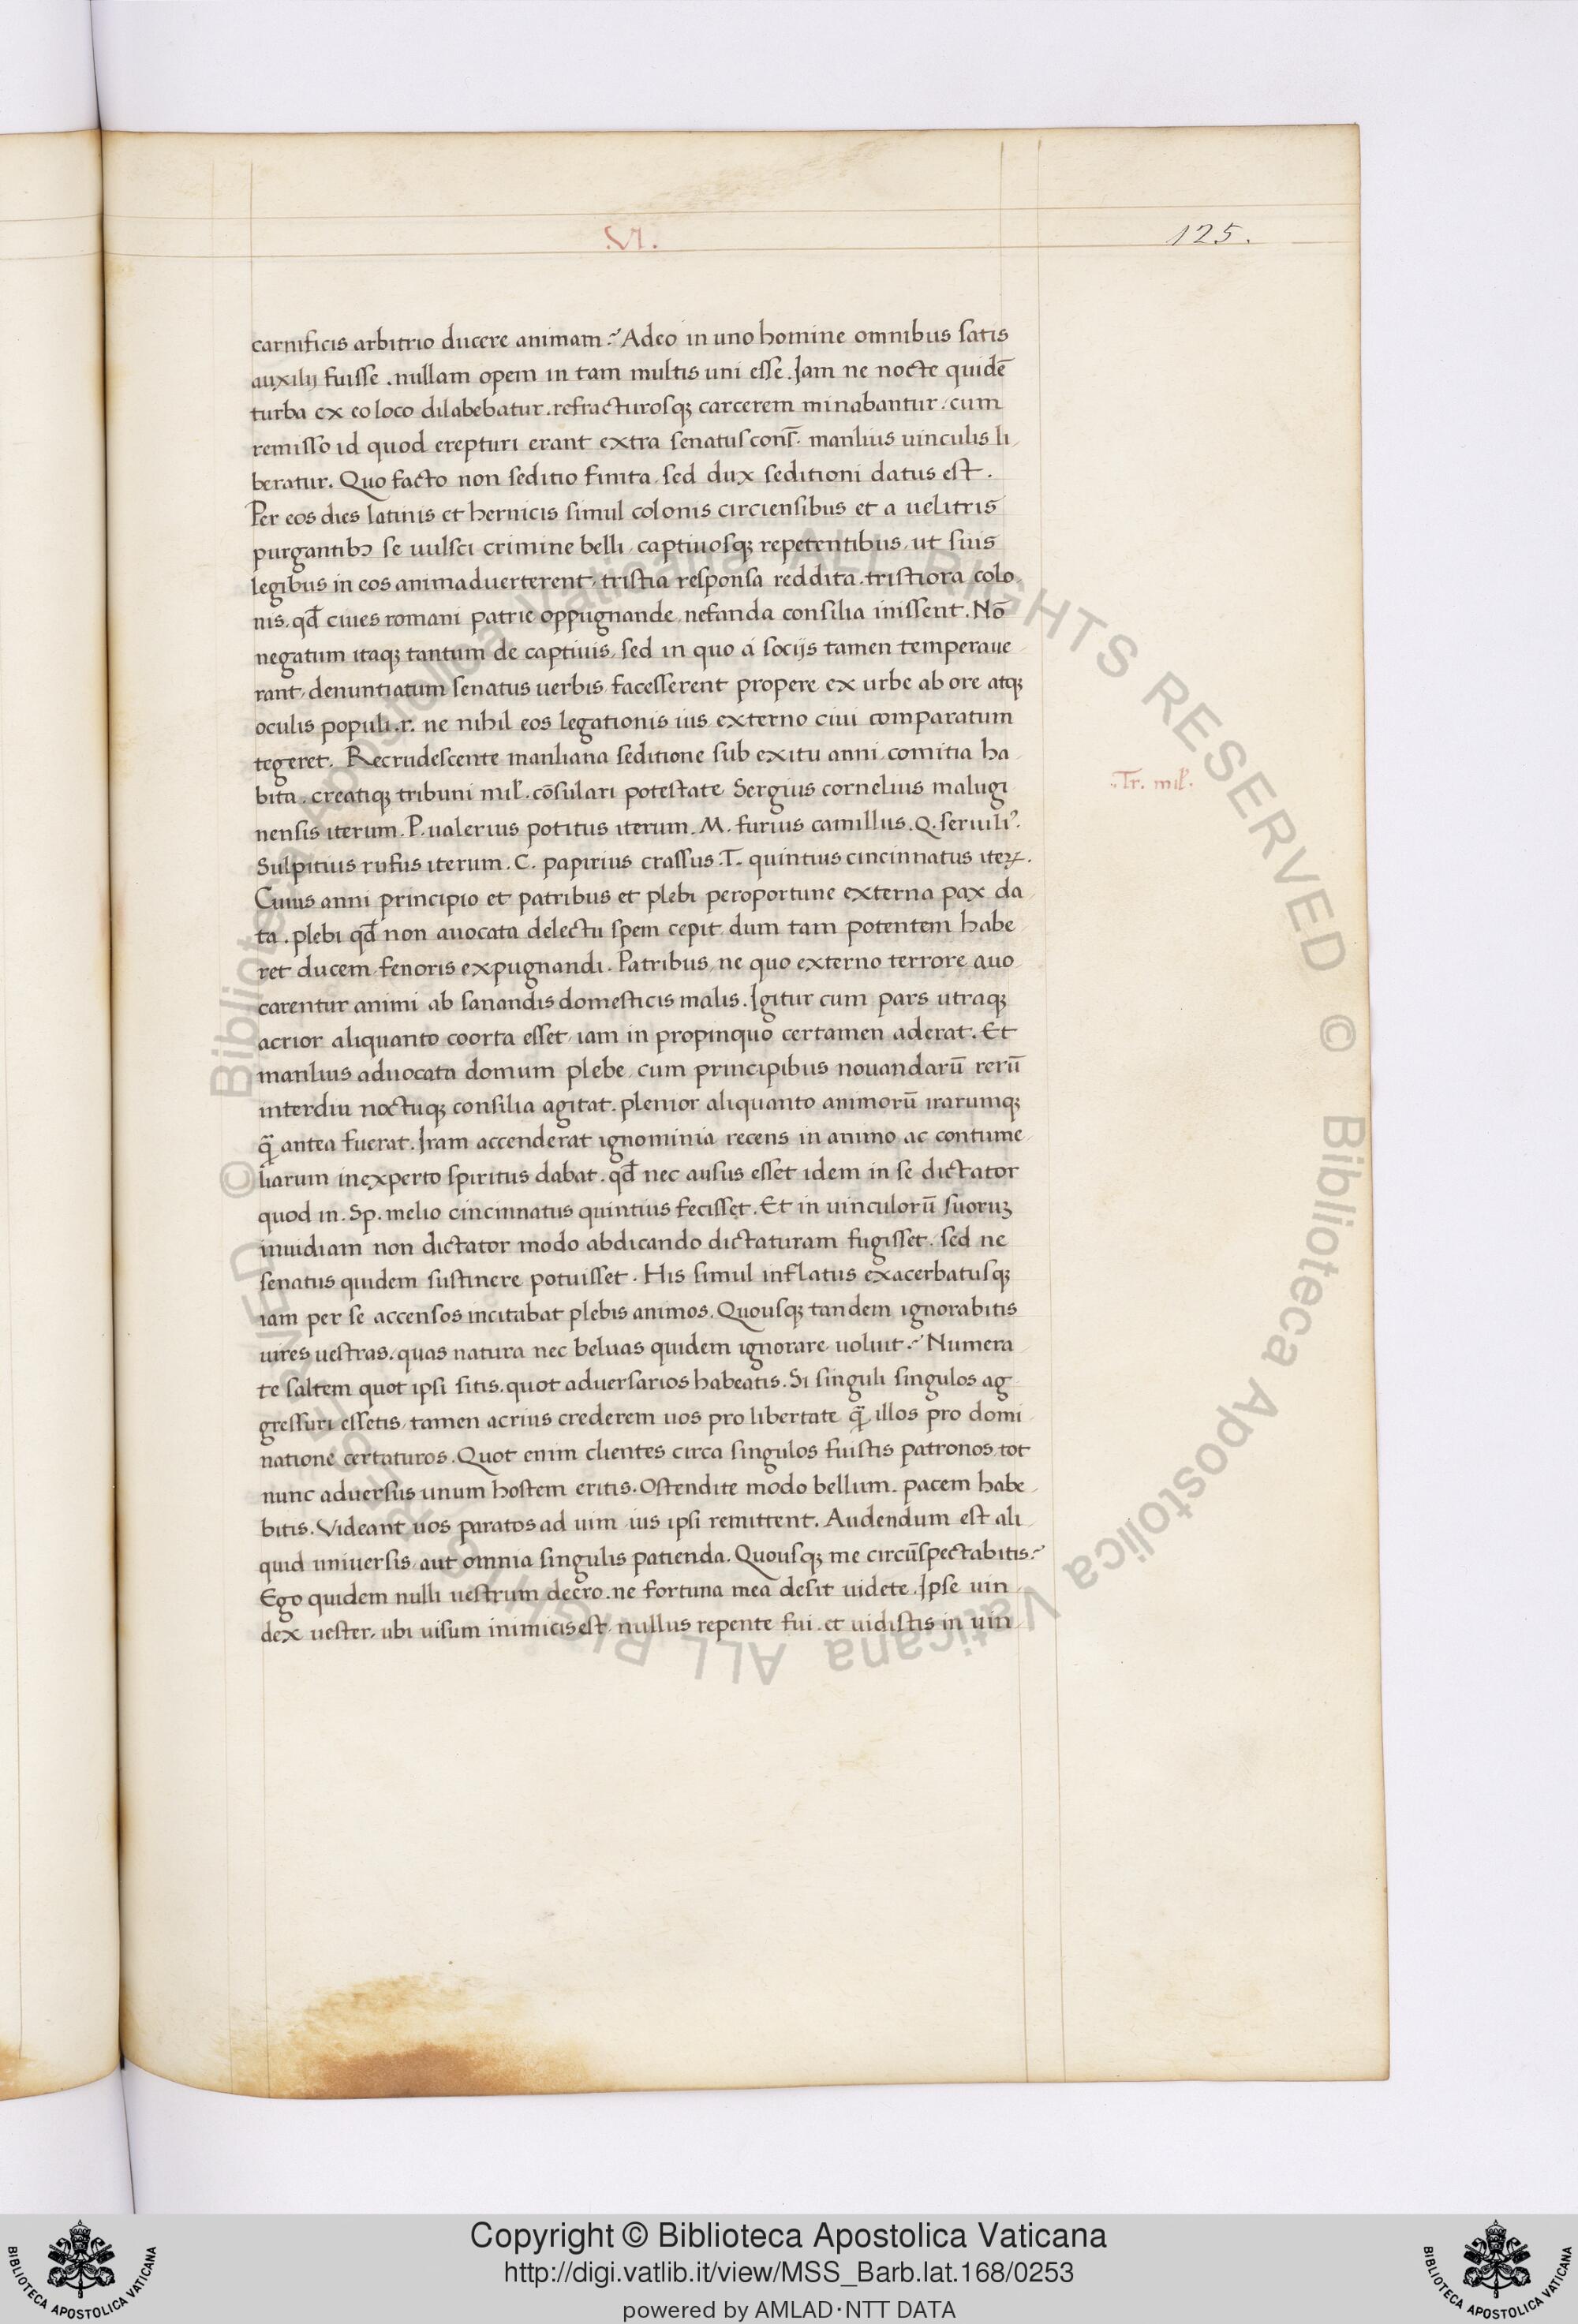 .VI.
125.
carnificis arbitrio ducere animam? Adeo in uno homine omnibus satis
auxilij fuisse . nullam opem in tam multis uni esse . Iam ne nocte quidē
turba ex eo loco dilabebatur . refracturosqꝫ carcerem minabantur . cum
remisso id quod erepturi erant extra senatus cons̄. manlius uinculis li
beratur. Quo facto non seditio finita . sed dux seditioni datus est .
Per eos dies latinis et hernicis simul colonis circiensibus et a uelitris
purgantibꝫ se uulsci crimine belli , captiuosqꝫ repetentibus , ut suis
legibus in eos animaduerterent , tristia responsa reddita . tristiora colo
nis . qđ ciues romani patrie oppugnande , nefanda consilia inissent . Nō
negatum itaqꝫ tantum de captiuis , sed in quo á socijs tamen temperaue
rant , denuntiatum senatus uerbis , facesserent propere ex urbe ab ore atqꝫ
oculis populi .r. ne nihil eos legationis ius externo ciui comparatum
tegeret . Recrudescente manliana seditione sub exitu anni , comitia ha
bita . creatiqꝫ tribuni mil̄. cōsulari potestate Sergius cornelius malugi
nensis iterum . P. ualerius potitus iterum . M. furius camillus . Q. seruiliꝰ.
Sulpitius rufus iterum . C. papirius crassus . T. quintius cincinnatus iteꝝ .
Cuius anni principio et patribus et plebi peroportune externa pax da
ta . plebi qđ non auocata delectu spem cepit , dum tam potentem habe
ret ducem fenoris expugnandi . Patribus , ne quo externo terrore auo
carentur animi ab sanandis domesticis malis . Igitur cum pars utraqꝫ
acrior aliquanto coorta esset , iam in propinquo certamen aderat . Et
manlius aduocata domum plebe , cum principibus nouandarū rerū
interdiu noctuqꝫ consilia agitat . plenior aliquanto animorū irarumqꝫ
q̄ antea fuerat . Iram accenderat ignominia recens in animo ac contume
liarum inexperto spiritus dabat . qđ nec ausus esset idem in se dictator
quod in . Sp. melio cincinnatus quintius fecisset . Et in uinculorū suoruꝫ
inuidiam non dictator modo abdicando dictaturam fugisset . sed ne
senatus quidem sustinere potuisset . His simul inflatus exacerbatusqꝫ
iam per se accensos incitabat plebis animos . Quousqꝫ tandem ignorabitis
uires uestras . quas natura nec beluas quidem ignorare uoluit? Numera
te saltem quot ipsi sitis . quot aduersarios habeatis . Si singuli singulos ag
gressuri essetis , tamen acrius crederem uos pro libertate q̄ illos pro domi
natione certaturos . Quot enim clientes circa singulos fuistis patronos , tot
nunc aduersus unum hostem eritis . Ostendite modo bellum . pacem habe
bitis . Videant uos paratos ad uim , ius ipsi remittent . Audendum est ali
quid uniuersis , aut omnia singulis patienda . Quousqꝫ me circūspectabitis?
Ego quidem nulli uestrum deero . ne fortuna mea desit uidete . Ipse uin
dex uester , ubi uisum inimicis est , nullus repente fui . et uidistis in uin
.Tr. mil̄.
© Biblioteca Apostolica Vaticana ALL RIGHTS RESERVED © Biblioteca Apostolica Vaticana ALL RIGHTS RESERVED
Copyright © Biblioteca Apostolica Vaticana
http://digi.vatlib.it/view/MSS_Barb.lat.168/0253
powered by AMLAD·NTT DATA
BIBLIOTECA APOSTOLICA VATICANA
BIBLIOTECA APOSTOLICA VATICANA